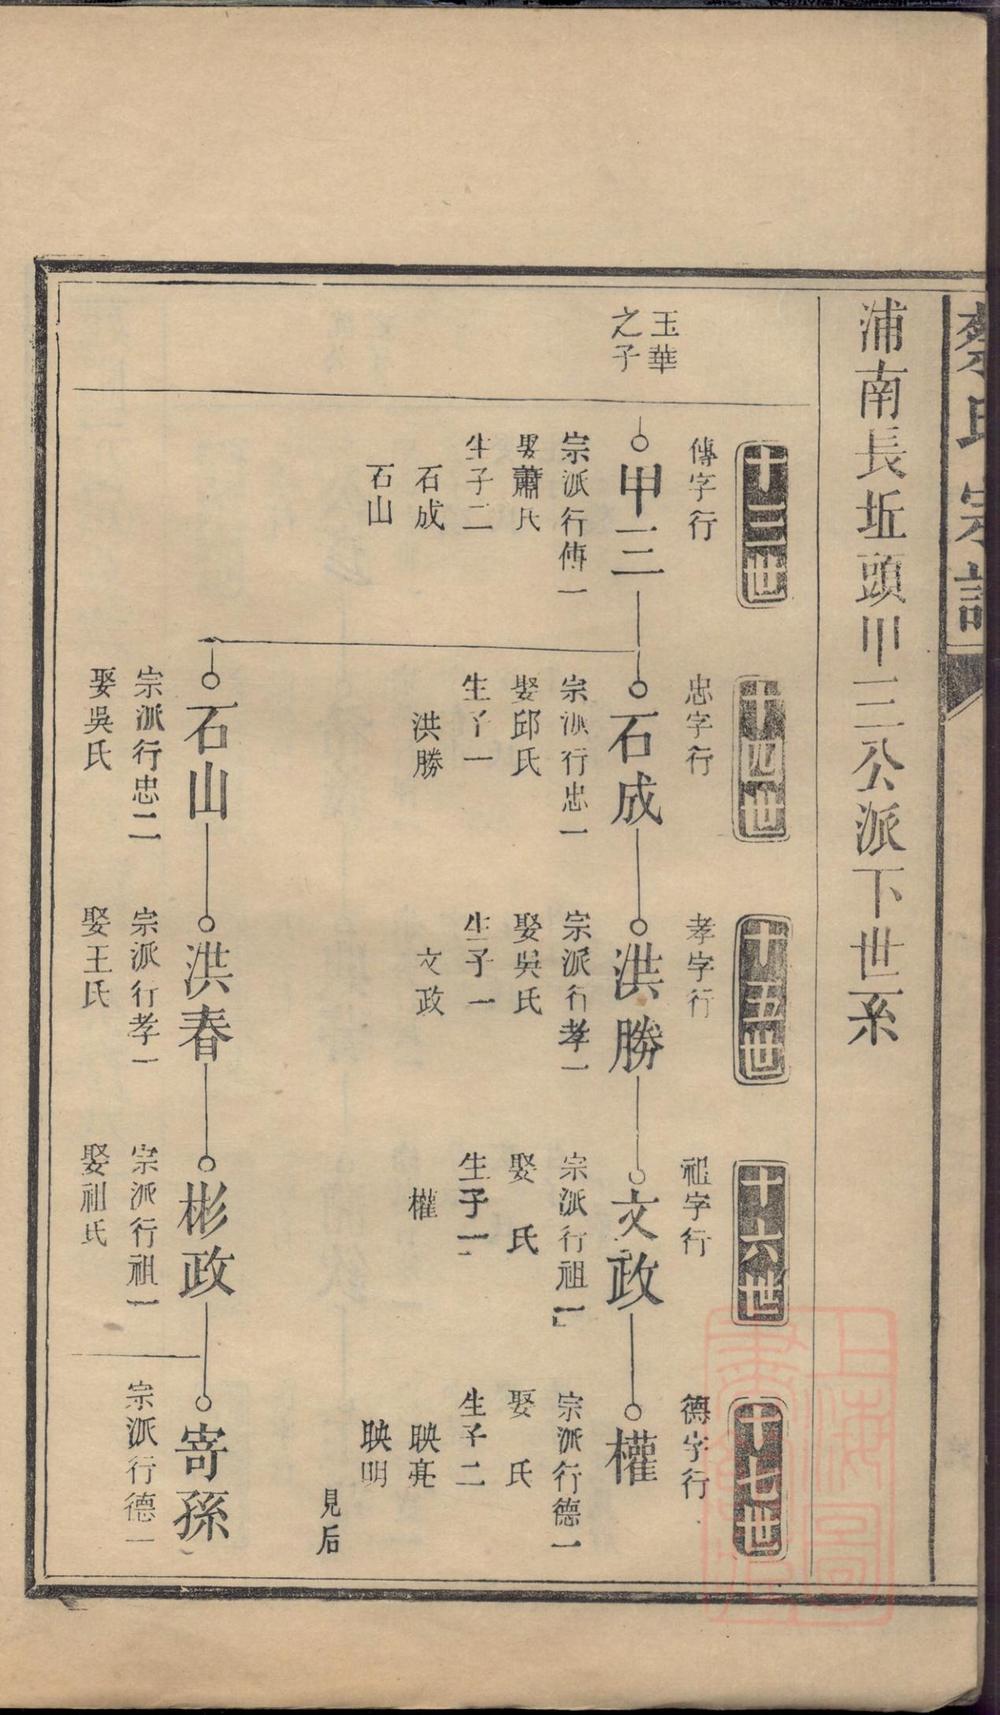 蔡氏宗譜
浦南長坵頭甲三公派下世系
十三世
傳字行
玉華
之子
甲三
宗派行傳一
娶蕭氏
生子二
石成
石山
十四世
忠字行
石成
宗派行忠一
娶邱氏
生子一
洪勝
石山
宗派行忠二
娶吳氏
十五世
孝字行
洪勝
宗派行孝一
娶吳氏
生子一
文政
洪春
宗派行孝一
娶王氏
十六世
祖字行
文政
宗派行祖一
娶 氏
生子一
權
彬政
宗派行祖一
娶祖氏
十七世
德字行
權
宗派行德一
娶 氏
生子二
映亮
映明
見后
寄孫
宗派行德一
上海圖
書館藏